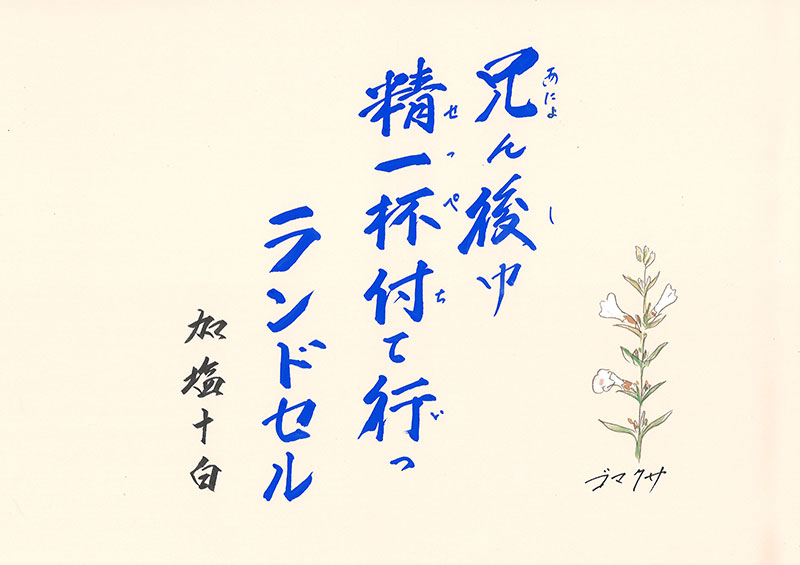 兄ん後ゆ
あによ
し
精一杯付て行っ
せっぺ
ち
い
ランドセル
加塩十白
ゴマクサ